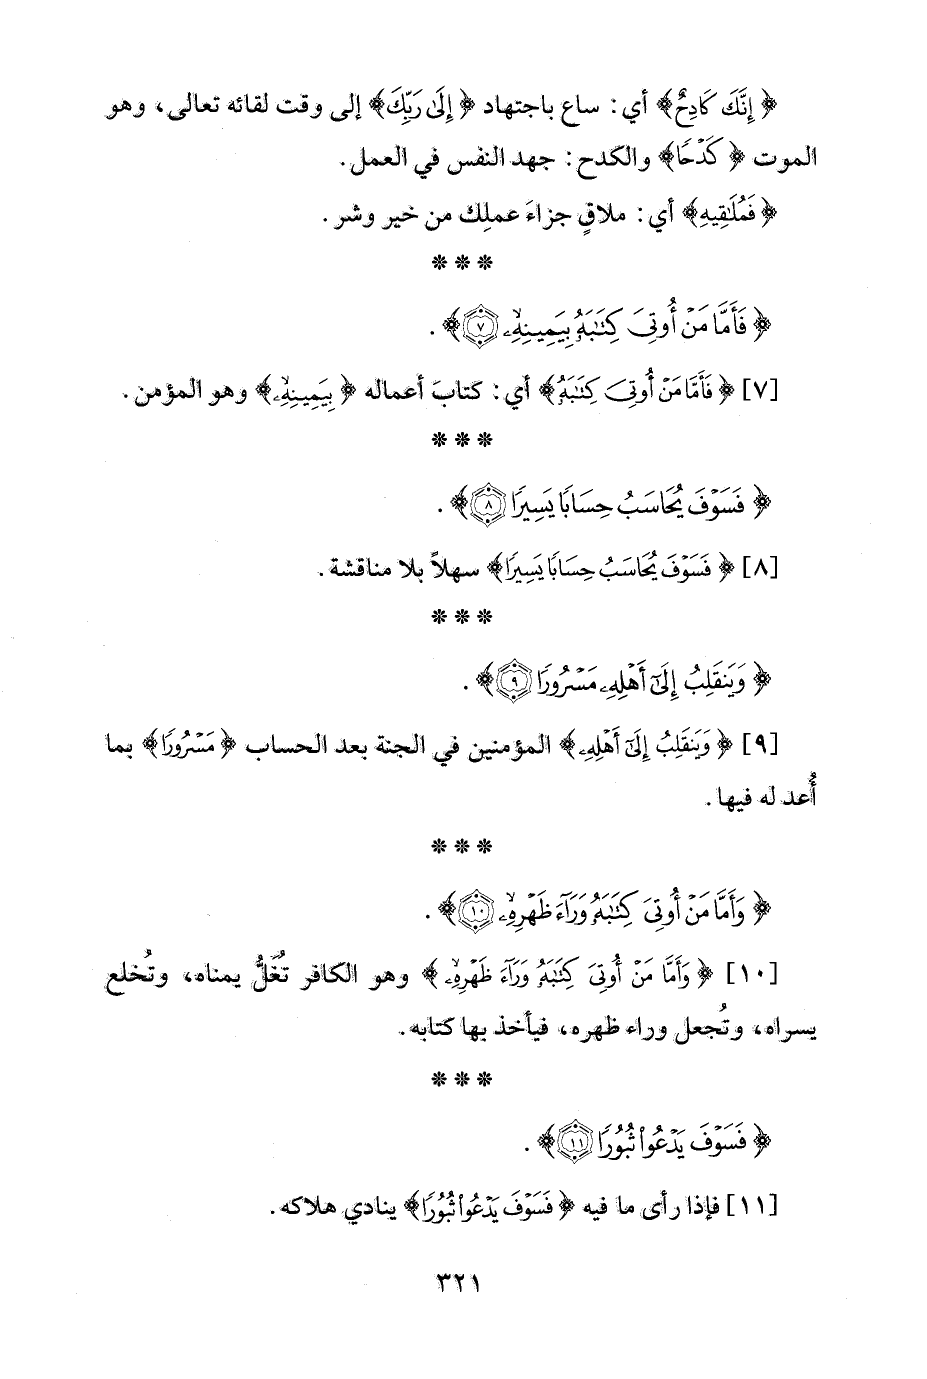 ﴿إِنَّكَ كَادِحٌ﴾ أي: ساع باجتهاد ﴿إِلَى رَبِّكَ﴾ إلى وقت لقائه تعالى، وهو
الموت ﴿كَدْحًا﴾ والكدح: جهد النفس في العمل.
﴿فَمُلَٰقِيهِ﴾ أي: ملاقٍ جزاءَ عملِك من خير وشر.
❊ ❊ ❊
﴿فَأَمَّا مَنْ أُوتِيَ كِتَٰبَهُۥ بِيَمِينِهِۦ ۝٧﴾.
[٧] ﴿فَأَمَّا مَنْ أُوتِيَ كِتَٰبَهُۥ﴾ أي: كتابَ أعماله ﴿بِيَمِينِهِۦ﴾ وهو المؤمن.
❊ ❊ ❊
﴿فَسَوْفَ يُحَاسَبُ حِسَابًا يَسِيرًا ۝٨﴾.
[٨] ﴿فَسَوْفَ يُحَاسَبُ حِسَابًا يَسِيرًا﴾ سهلاً بلا مناقشة.
❊ ❊ ❊
﴿وَيَنقَلِبُ إِلَىٰٓ أَهْلِهِۦ مَسْرُورًا ۝٩﴾.
[٩] ﴿وَيَنقَلِبُ إِلَىٰٓ أَهْلِهِۦ﴾ المؤمنين في الجنة بعد الحساب ﴿مَسْرُورًا﴾ بما
أُعد له فيها.
❊ ❊ ❊
﴿وَأَمَّا مَنْ أُوتِيَ كِتَٰبَهُۥ وَرَآءَ ظَهْرِهِۦ ۝١٠﴾.
[١٠] ﴿وَأَمَّا مَنْ أُوتِيَ كِتَٰبَهُۥ وَرَآءَ ظَهْرِهِۦ﴾ وهو الكافر تُغَلُّ يمناه، وتُخلع
يسراه، وتُجعل وراء ظهره، فيأخذ بها كتابه.
❊ ❊ ❊
﴿فَسَوْفَ يَدْعُوا۟ ثُبُورًا ۝١١﴾.
[١١] فإذا رأى ما فيه ﴿فَسَوْفَ يَدْعُوا۟ ثُبُورًا﴾ ينادي هلاكه.
٣٢١